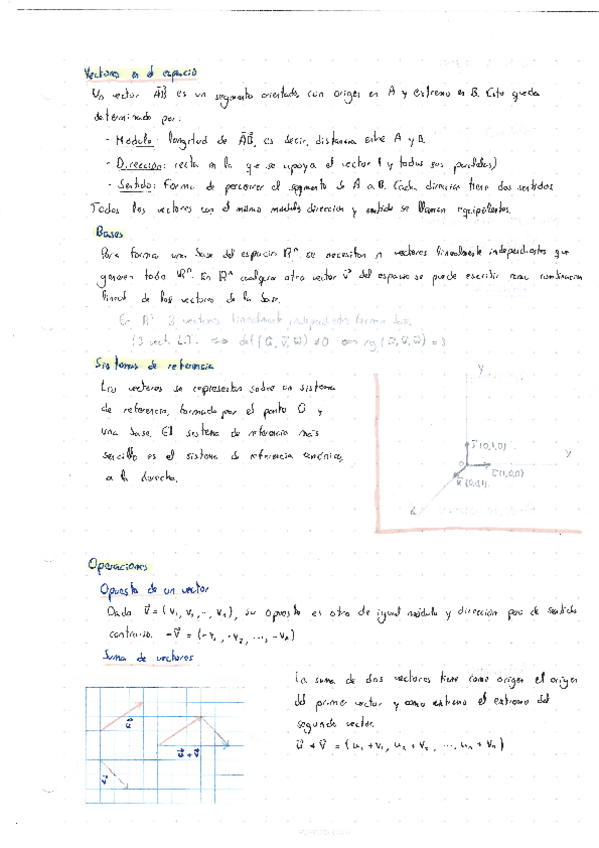 Vectores en el espacio
Un vector AB es un segmento orientado con origen en A y extremo en B. Este queda
determinado por:
- Módulo: longitud de AB, es decir, distancia entre A y B.
- Dirección: recta en la que se apoya el vector (y todas sus paralelas)
- Sentido: Forma de percorrer el segmento de A a B. Cada dirección tiene dos sentidos
Todos los vectores con el mismo módulo, dirección y sentido se llaman equipolentes.
Bases
Para formar una base del espacio Rⁿ se necesitan n vectores linealmente independientes que
generen todo Rⁿ. En Rⁿ cualquier otro vector v del espacio se puede escribir como combinación
lineal de los vectores de la base.
En R³ 3 vectores linealmente independientes forman base
(3 vect. L.I. ⇔ det(u, v, w) ≠ 0 ⇔ rg(u, v, w) = 3
Sistemas de referencia
Los vectores se representan sobre un sistema
de referencia, formado por el punto O y
una base. El sistema de referencia más
sencillo es el sistema de referencia canónico,
a la derecha.
y
(0,1,0)
O
(1,0,0)
y
(0,0,1)
Operaciones
Opuesto de un vector
Dado v = (v₁, v₂, ..., vₙ), su opuesto es otro de igual módulo y dirección pero de sentido
contrario. -v = (-v₁, -v₂, ..., -vₙ)
Suma de vectores
La suma de dos vectores tiene como origen el origen
del primer vector y como extremo el extremo del
segundo vector.
u + v = (u₁ + v₁, u₂ + v₂, ..., uₙ + vₙ)
u
u + v
v